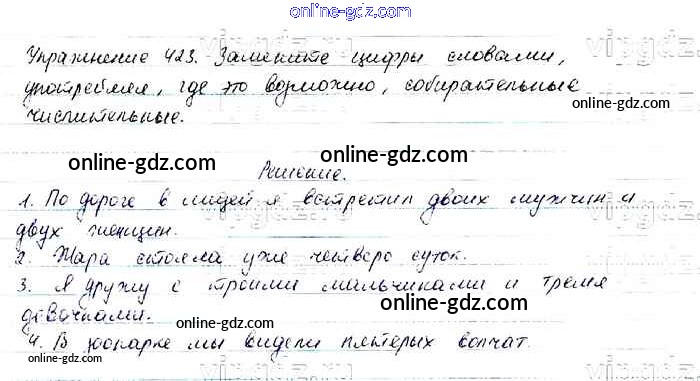 online-gdz.com
Упражнение 423. Замените цифры словами,
употребляя, где это возможно, собирательные
online-gdz.com
числительные.
online-gdz.com
online-gdz.com
Решение.
1. По дороге в лицей я встретил двоих мужчин и
двух женщин.
online-gdz.com
2. Жара стояла уже четверо суток.
3. Я дружу с троими мальчиками и тремя
online-gdz.com
девочками.
online-gdz.com
4. В зоопарке мы видели пятерых волчат.
online-gdz.com
online-gdz.com